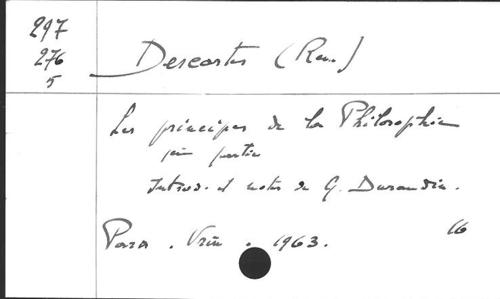 297
276
5
Descartes (Ren.)
Les principes de la Philosophie
1ère partie
Introd. et notes de G. Durandin.
Paris. Vrin. 1963. 16